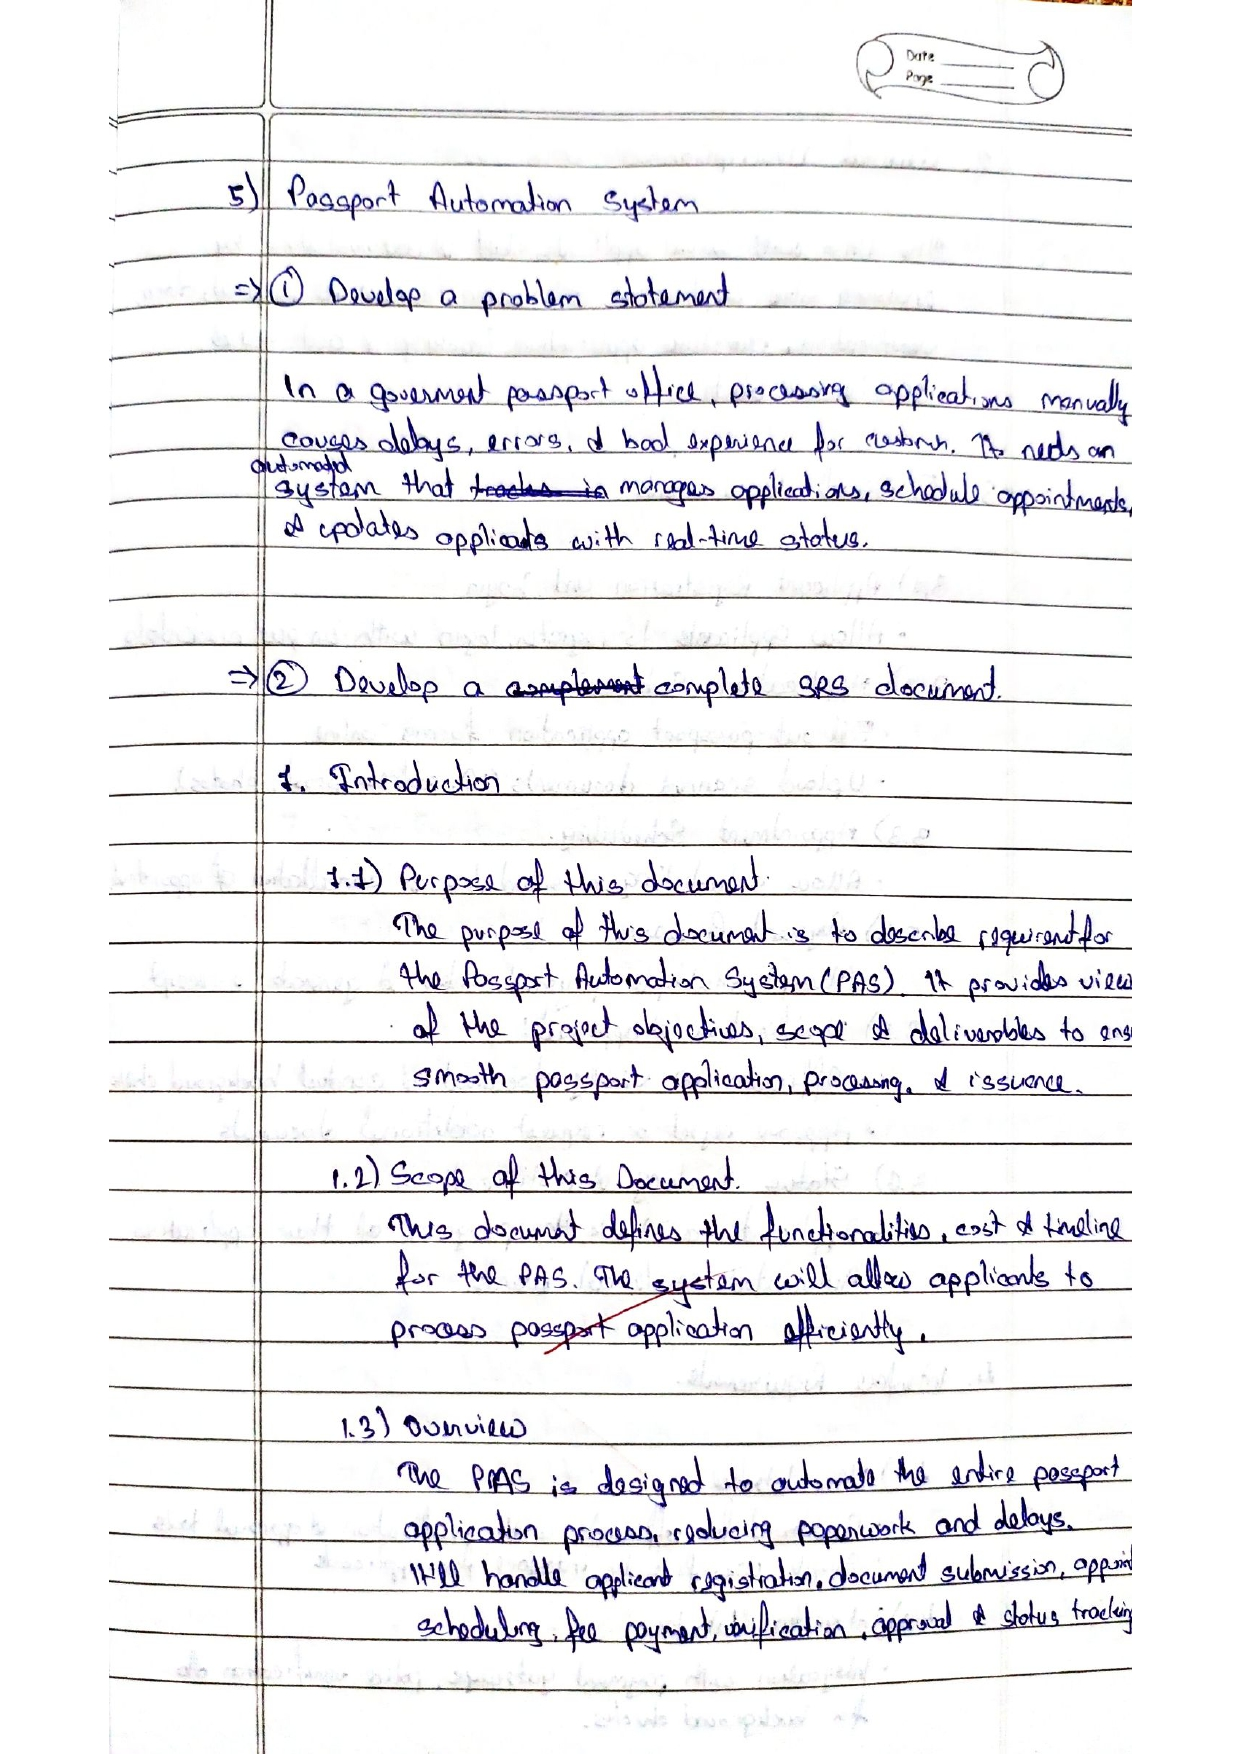 Date
Page
5) Passport Automation System
=> ① Develop a problem statement
In a goverment passport office, processing applications manually
causes delays, errors, & bad experience for It needs an
automated
system that manages applications, schedule appointments,
& updates applicants with real-time status.
=> ② Develop a complete SRS document.
1. Introduction
1.1) Purpose of this document.
The purpose of this document is to describe requirent for
the Passport Automation System (PAS). It provides view
of the project objectives, scope & deliverables to ens
smooth passport application, processing, & issuence.
1.2) Scope of this Document.
This document defines the functionalities, cost & timeline
for the PAS. The system will allow applicants to
process passport application efficiently.
1.3) Overview
The PAS is designed to automate the entire passport
application process, reducing paperwork and delays.
It'll handle applicant registration, document submission, appoint
scheduling, fee payment, verification, approval & status tracking